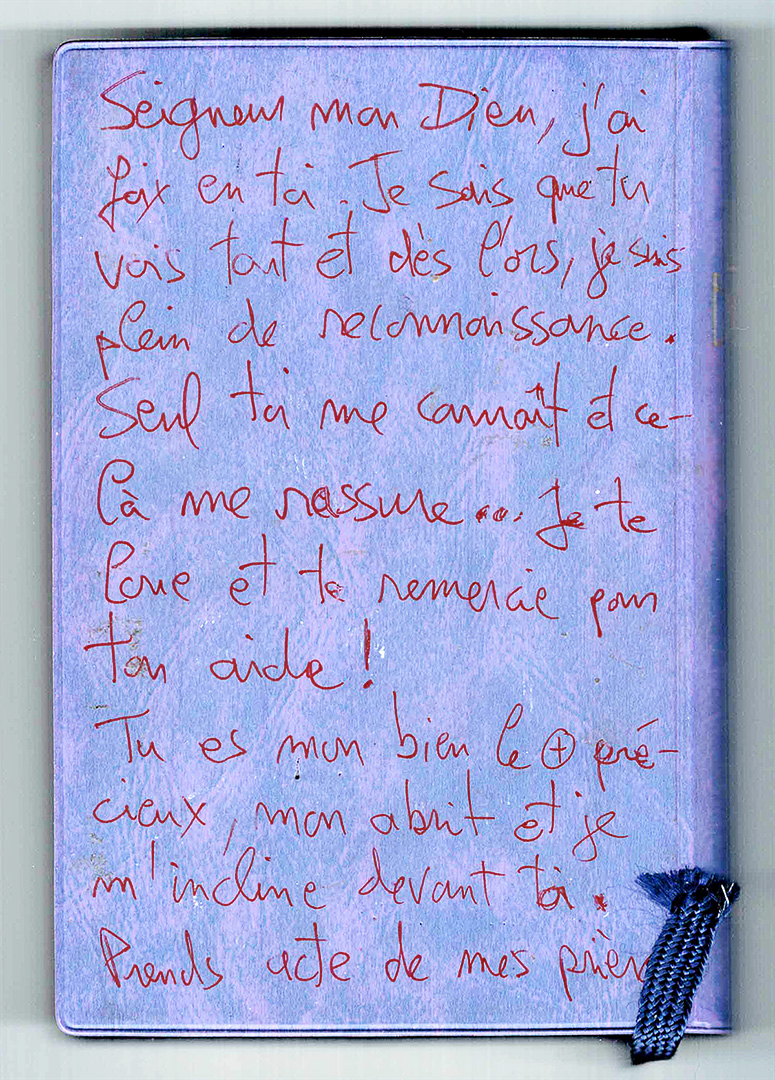 Seigneur mon Dieu, j'ai
foix en toi. Je sais que tu
vois tout et dès l'ors, je suis
plein de reconnaissance.
Seul toi me connaît et ce-
là me rassure... Je te
loue et te remercie pour
ton aide !
Tu es mon bien le ⊕ pré-
cieux, mon abrit et je
m'incline devant toi.
Prends acte de mes prièr